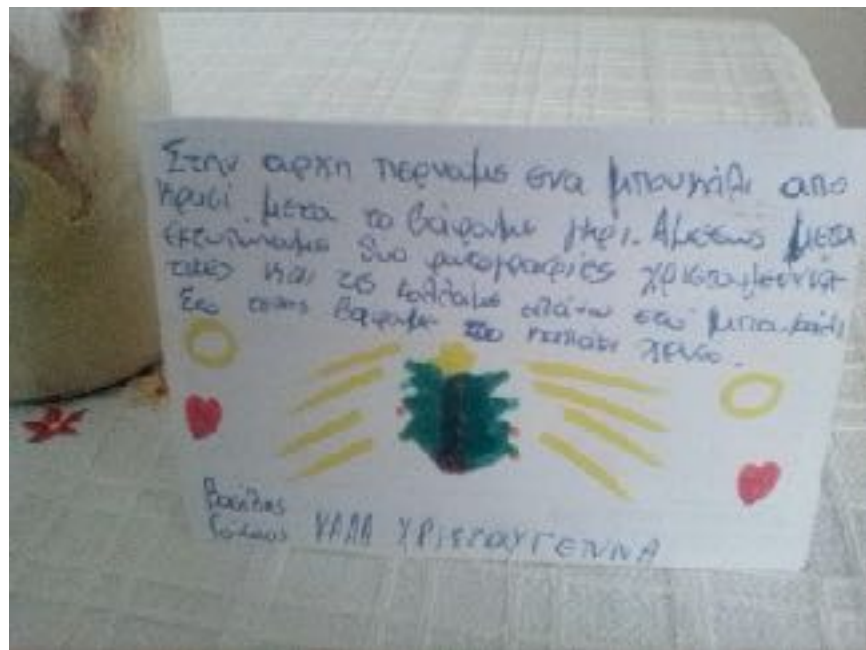 Στην αρχη περναμε ενα μπουκάλι απο
κρασί. μετα το βάφαμε γκρι. Αμεσως μετα
εκτυπωναμε δυο φωτογραφίες χριστουγεννια-
τικες και τις κολλαμε επάνω στο μπουκάλι
Στο τελος βαφαμε το καπακι
ΚΑΛΑ ΧΡΙΣΤΟΥΓΕΝΝΑ